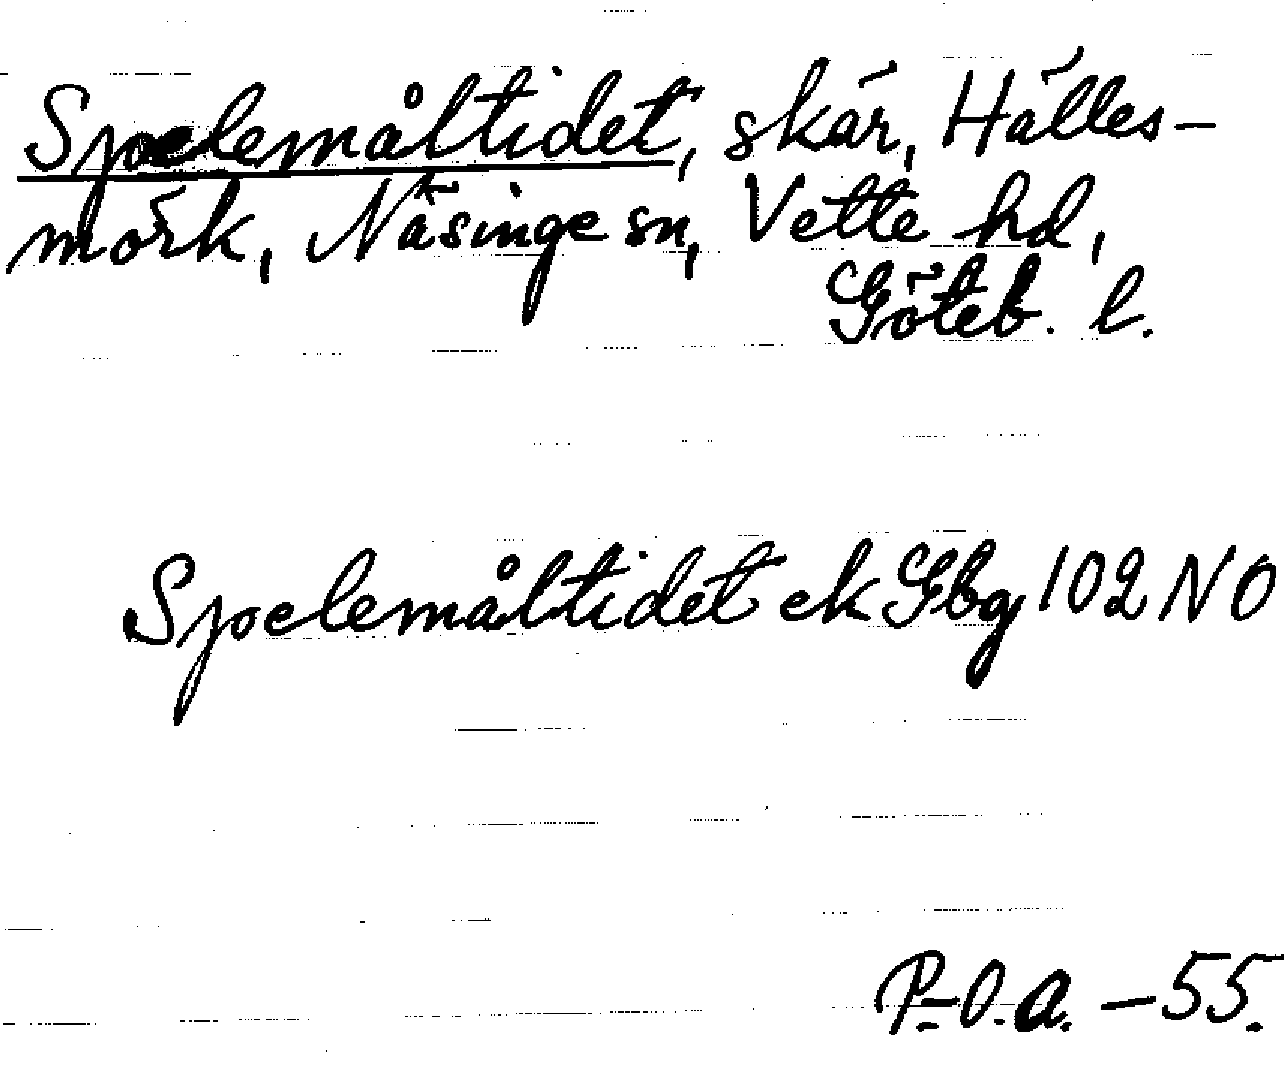 Spelemåltidet, skär, Hälles-
mörk, Näsinge sn, Vette hd,
Göteb. l.
Spelemåltidet ek Gbg 102 NO
P.-O.A. -55.